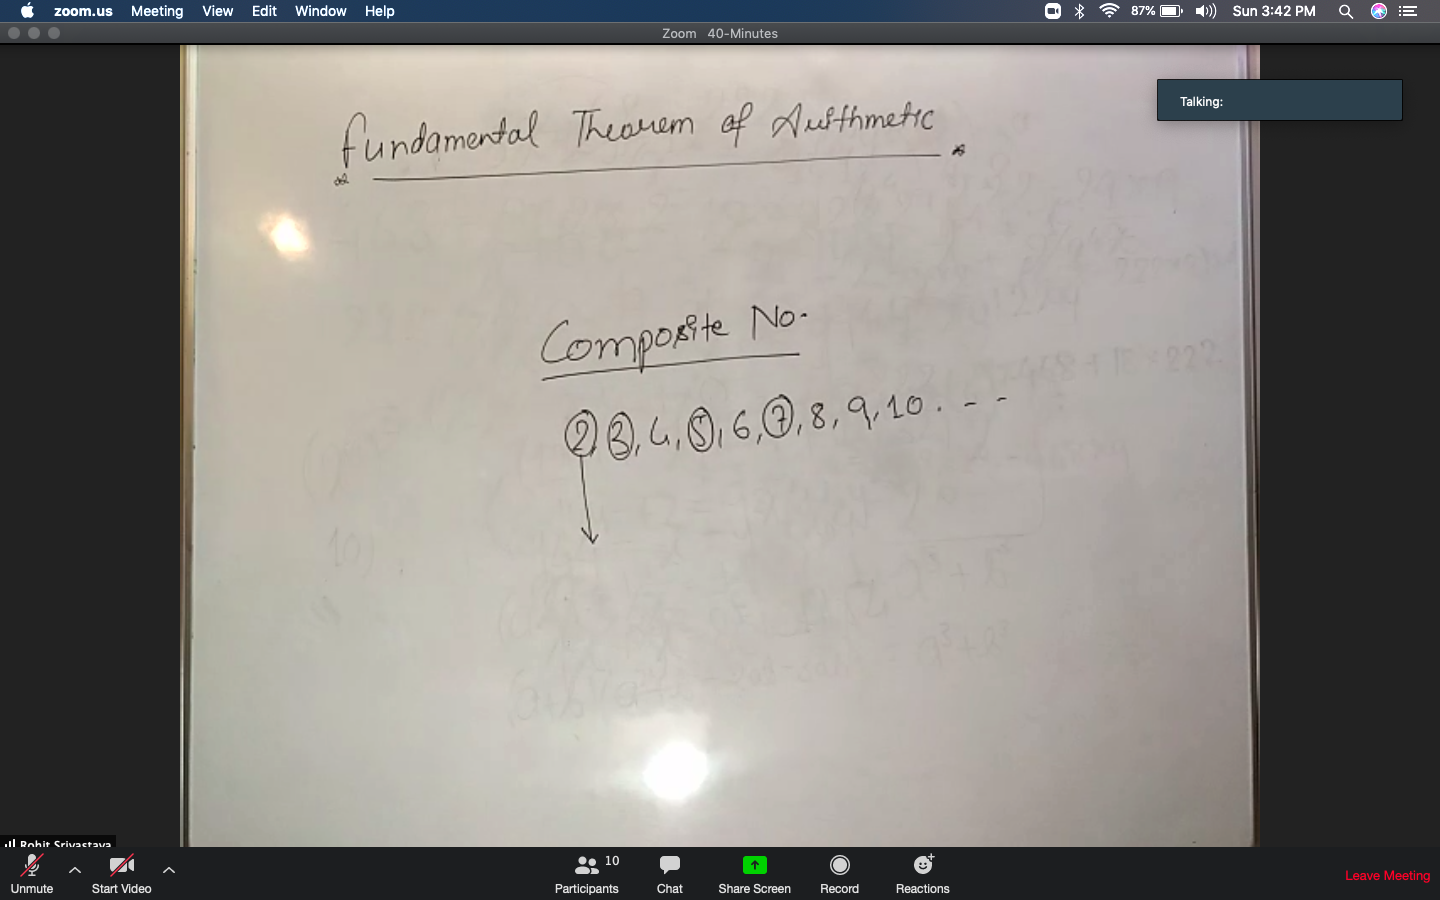 zoom.us Meeting View Edit Window Help 87% Sun 3:42 PM
Zoom 40-Minutes
Talking:
Fundamental Theorem of Arithmetic
Composite No.
2, 3, 4, 5, 6, 7, 8, 9, 10. - -
Rohit Srivastava
10
Unmute Start Video Participants Chat Share Screen Record Reactions Leave Meeting